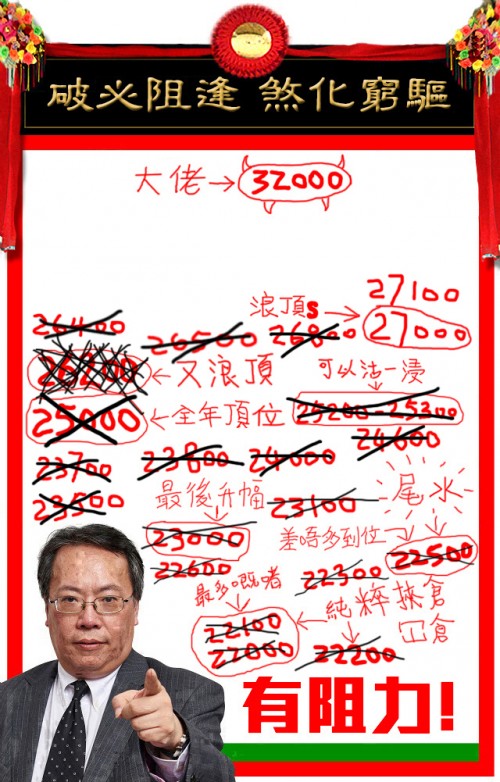 驅窮化煞 逢阻必破
大佬→32000
27100
浪頂s→27000
26400
26500
26800
26200←又浪頂
可以沽一浸
25000←全年頂位
25200-25300
24600
23700
23800
24000
尾水
23500
最後升幅
23100
23000
差唔多到位→22500
22600
22300
最多嘅啫
純粹挾倉
冚倉
22100
22000
22200
有阻力!